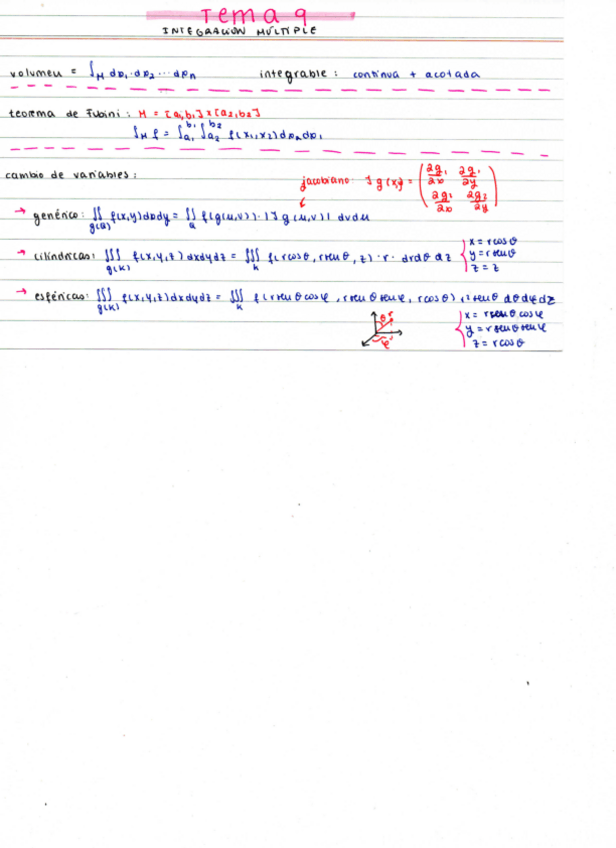 Tema 9
INTEGRACIÓN MÚLTIPLE
volumen = ∫_M dx₁·dx₂ ... dxₙ integrable: continua + acotada
teorema de Fubini: M = [a₁,b₁]×[a₂,b₂]
∫_M f = ∫_{a₁}^{b₁} ∫_{a₂}^{b₂} f(x₁,x₂)dx₂dx₁
cambio de variables:
jacobiano: J g(x,y) = (∂g₁/∂x ∂g₁/∂y
∂g₂/∂x ∂g₂/∂y)
→ genérico: ∬_{g(Q)} f(x,y)dxdy = ∬_Q f(g(u,v))·|J g(u,v)| dvdu
→ cilíndricas: ∭_{g(K)} f(x,y,z) dxdydz = ∭_K f(rcosθ, rsenθ, z)·r· drdθdz { x = rcosθ
y = rsenθ
z = z
→ esféricas: ∭_{g(K)} f(x,y,z)dxdydz = ∭_K f(rsenθcosφ, rsenθsenφ, rcosθ) r²senθ dθdφdz
θ r
φ
{ x = rsenθcosφ
y = rsenθsenφ
z = rcosθ